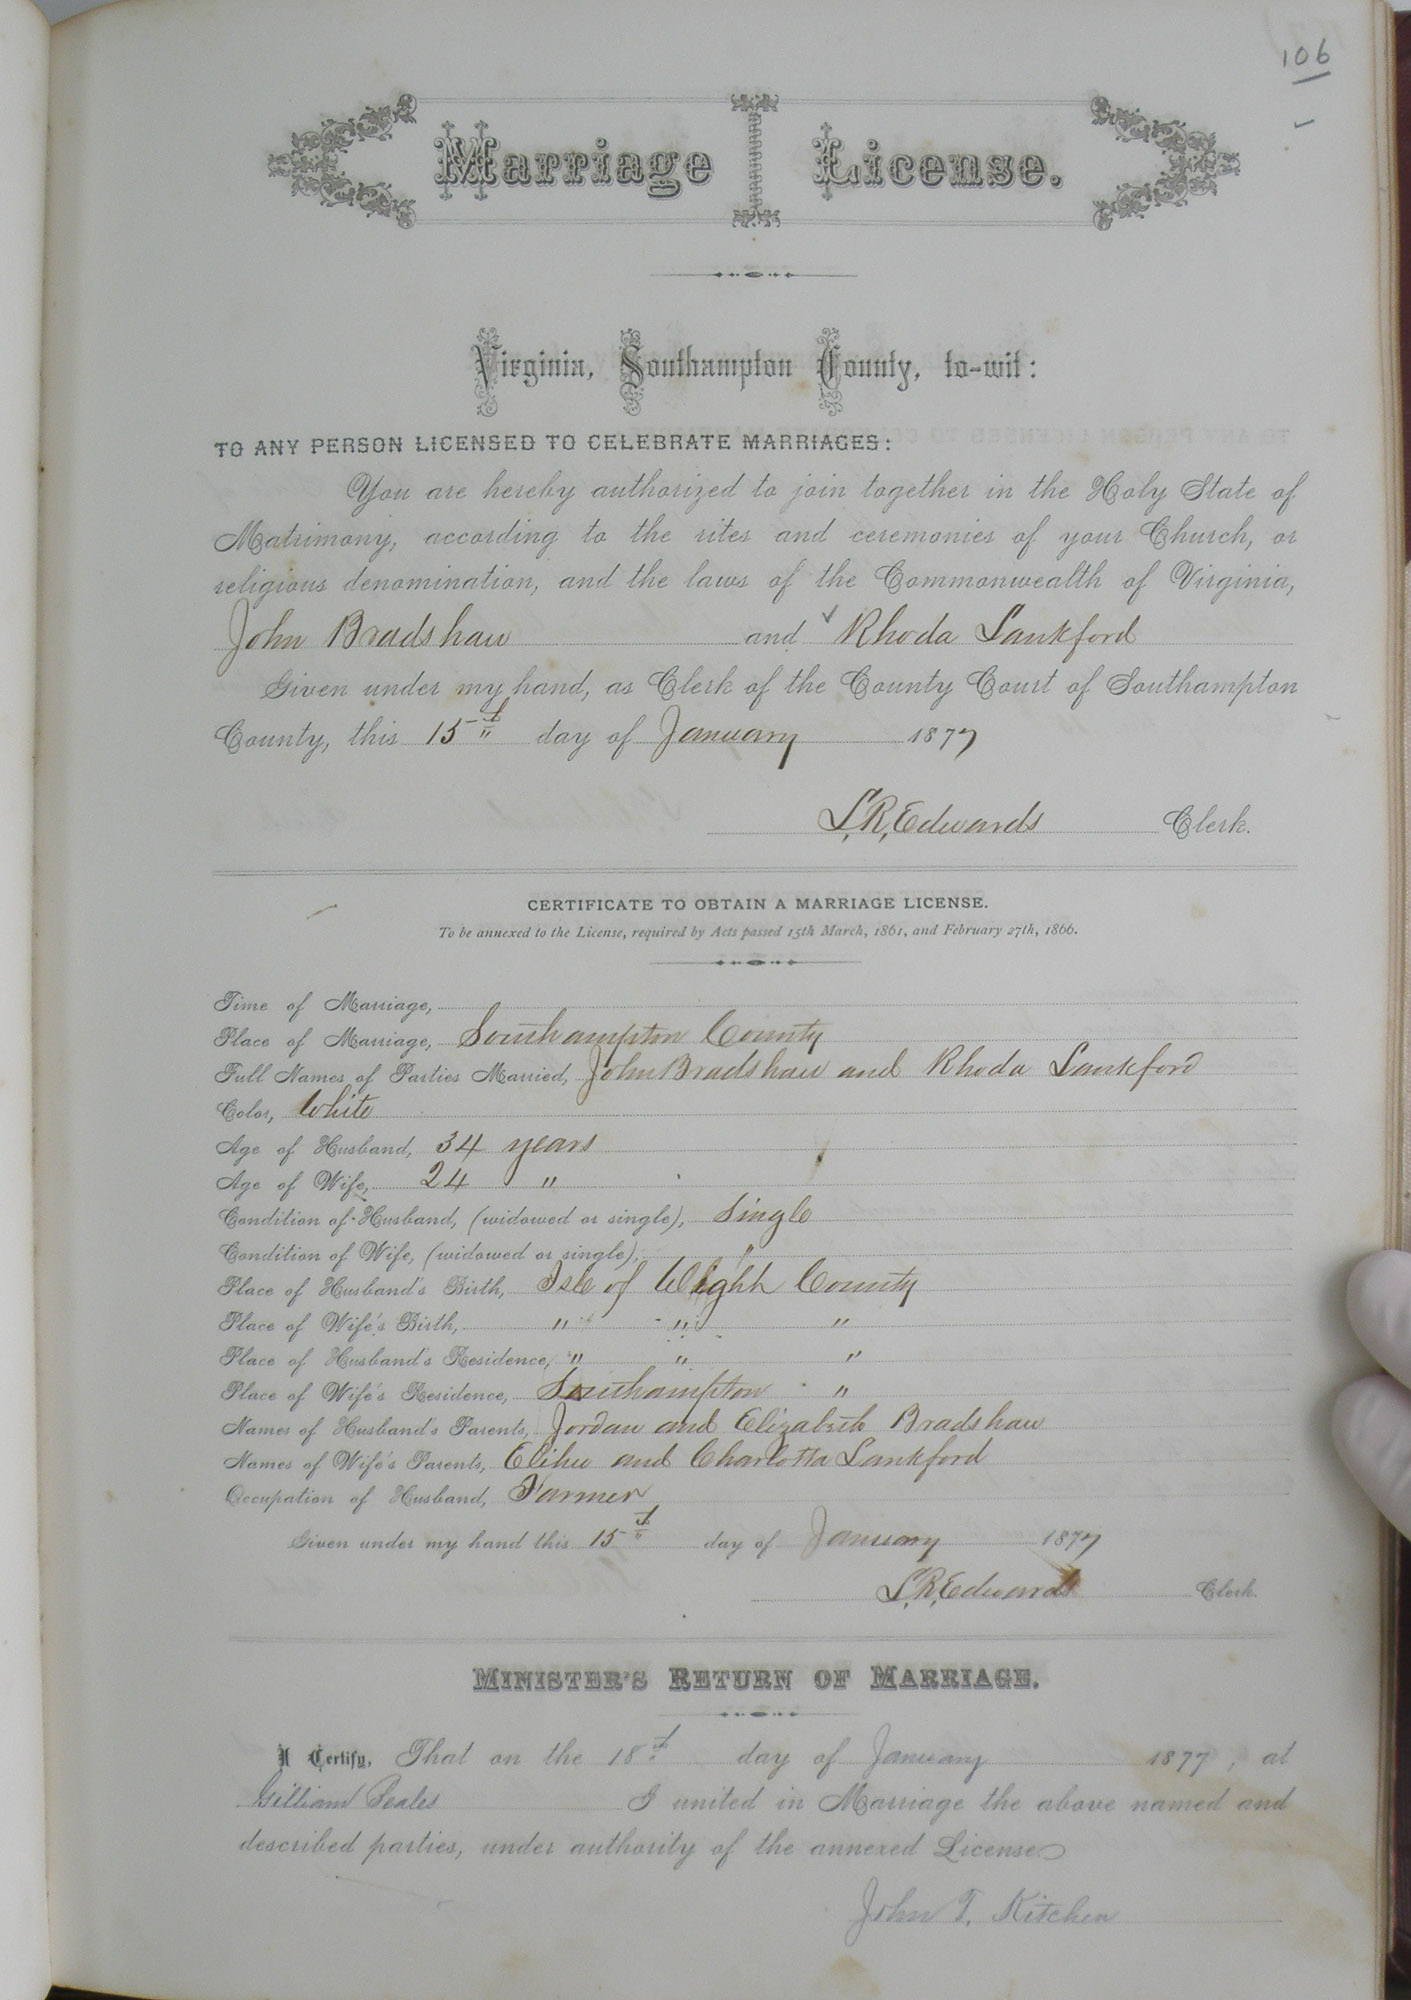 106
Marriage License.
Virginia, Southampton County, to-wit:
TO ANY PERSON LICENSED TO CELEBRATE MARRIAGES:
You are hereby authorized to join together in the Holy State of
Matrimony, according to the rites and ceremonies of your Church, or
religious denomination, and the laws of the Commonwealth of Virginia,
John Bradshaw and ✓ Rhoda Lankford
Given under my hand, as Clerk of the County Court of Southampton
County, this 15th day of January 1877
L,R,Edwards Clerk.
CERTIFICATE TO OBTAIN A MARRIAGE LICENSE.
To be annexed to the License, required by Acts passed 15th March, 1861, and February 27th, 1866.
Time of Marriage,
Place of Marriage, Southampton County
Full Names of Parties Married, John Bradshaw and Rhoda Lankford
Color, White
Age of Husband, 34 years
Age of Wife, 24 "
Condition of Husband, (widowed or single), Single
Condition of Wife, (widowed or single), "
Place of Husband's Birth, Isle of Wight County
Place of Wife's Birth, " " "
Place of Husband's Residence, " " "
Place of Wife's Residence, Southampton "
Names of Husband's Parents, Jordan and Elizabeth Bradshaw
Names of Wife's Parents, Elihu and Charlotta Lankford
Occupation of Husband, Farmer
Given under my hand this 15th day of January 1877
L,R,Edwards Clerk.
MINISTER'S RETURN OF MARRIAGE.
I Certify, That on the 18th day of January 1877, at
Gilliam Beales I united in Marriage the above named and
described parties, under authority of the annexed License
John T. Kitchen